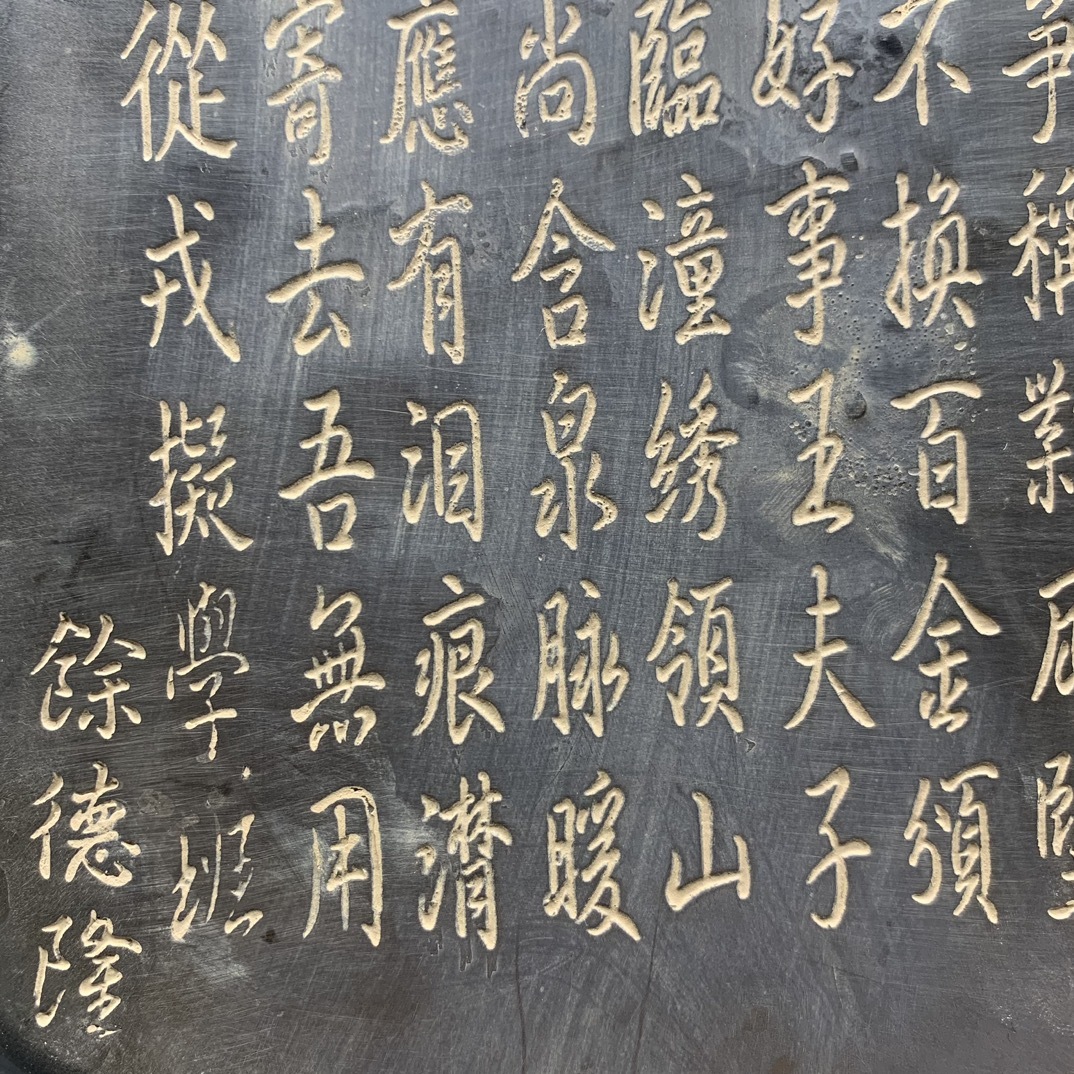 爭稱業
不換百金頒
好事王夫子
臨潼绣領山
尚含泉脉暖
應有泪痕潸
寄去吾無用
從戎擬學班
餘德隆